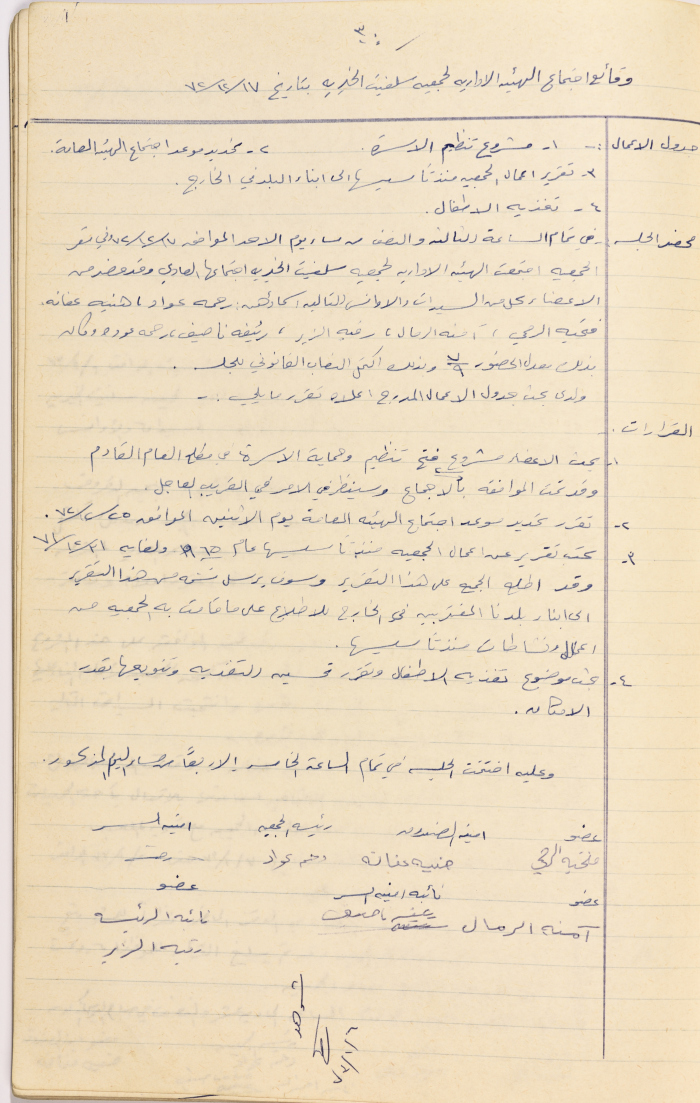 أ
٣٠
وقائع اجتماع الهيئه الاداريه لجمعيه سلفيت الخيريه بتاريخ ٧٢/١٢/١٧
جدول الاعمال :- ١- مشروع تنظيم الاسرة. ٢- تحديد موعد اجتماع الهيئه العامة.
٣- تقرير اعمال الجمعيه منذ تأسيسها الى ابناء البلد في الخارج.
٤- تغذيه الاطفال.
محضر الجلسه : في تمام الساعة الثالثه والنصف من مساء يوم الاحد الموافق ٧٢/١٢/١٧ وفي مقر
الجمعيه اجتمعت الهيئه الاداريه لجمعيه سلفيت الخيريه اجتماعها العادي وقد حضر من
الاعضاء كل من السيدات والاوانس التاليه اسماؤهن: رحمه عواد، هنيه عفانه.
فتحيه الرمحي، آمنه الرمال، رقيه الزير، رئيفه ناصيف، رحمه عوده وكان
بذلك معدل الحضور ٧/٩ وبذلك اكتمل النصاب القانوني للجلسه.
ولدى بحث جدول الاعمال المدرج اعلاه تقرر ما يلي :-
القرارات :-
١- بحث الاعضاء مشروع فتح تنظيم وحماية الاسرة في مطلع العام القادم
وقد تمت الموافقه بالاجماع وسينظر في الامر في القريب العاجل.
٢- تقرر تحديد موعد اجتماع الهيئه العامة يوم الاثنين الموافق ٧٢/١٢/٢٥.
٣- بحث تقرير عن اعمال الجمعيه منذ تأسيسها عام ولغايه ٧٢/١٢/٣١
وقد اطلع الجميع على هذا التقرير وسوف يرسل نسخه من هذا التقرير
الى ابناء بلدنا المغتربين في الخارج للاطلاع على ما قامت به الجمعيه من
اعمال ونشاطات منذ تأسيسها.
٤- بحث موضوع تغذيه الاطفال وتقرر تحسين التغذيه وتنويعها بقدر
الامكان.
وعليه اختتمت الجلسه في تمام الساعة الخامسه الا ربعاً من مساء اليوم المذكور.
عضو امينه الصندوق رئيسه الجمعيه امينه السر
فتحيه الرمحي هنيه عفانه رحمه عواد
عضو نائبه امينه السر عضو
آمنه الرمال ناصيف نائبه الرئيسه
رقيه الزير
شوهد
٧٣/١/٦